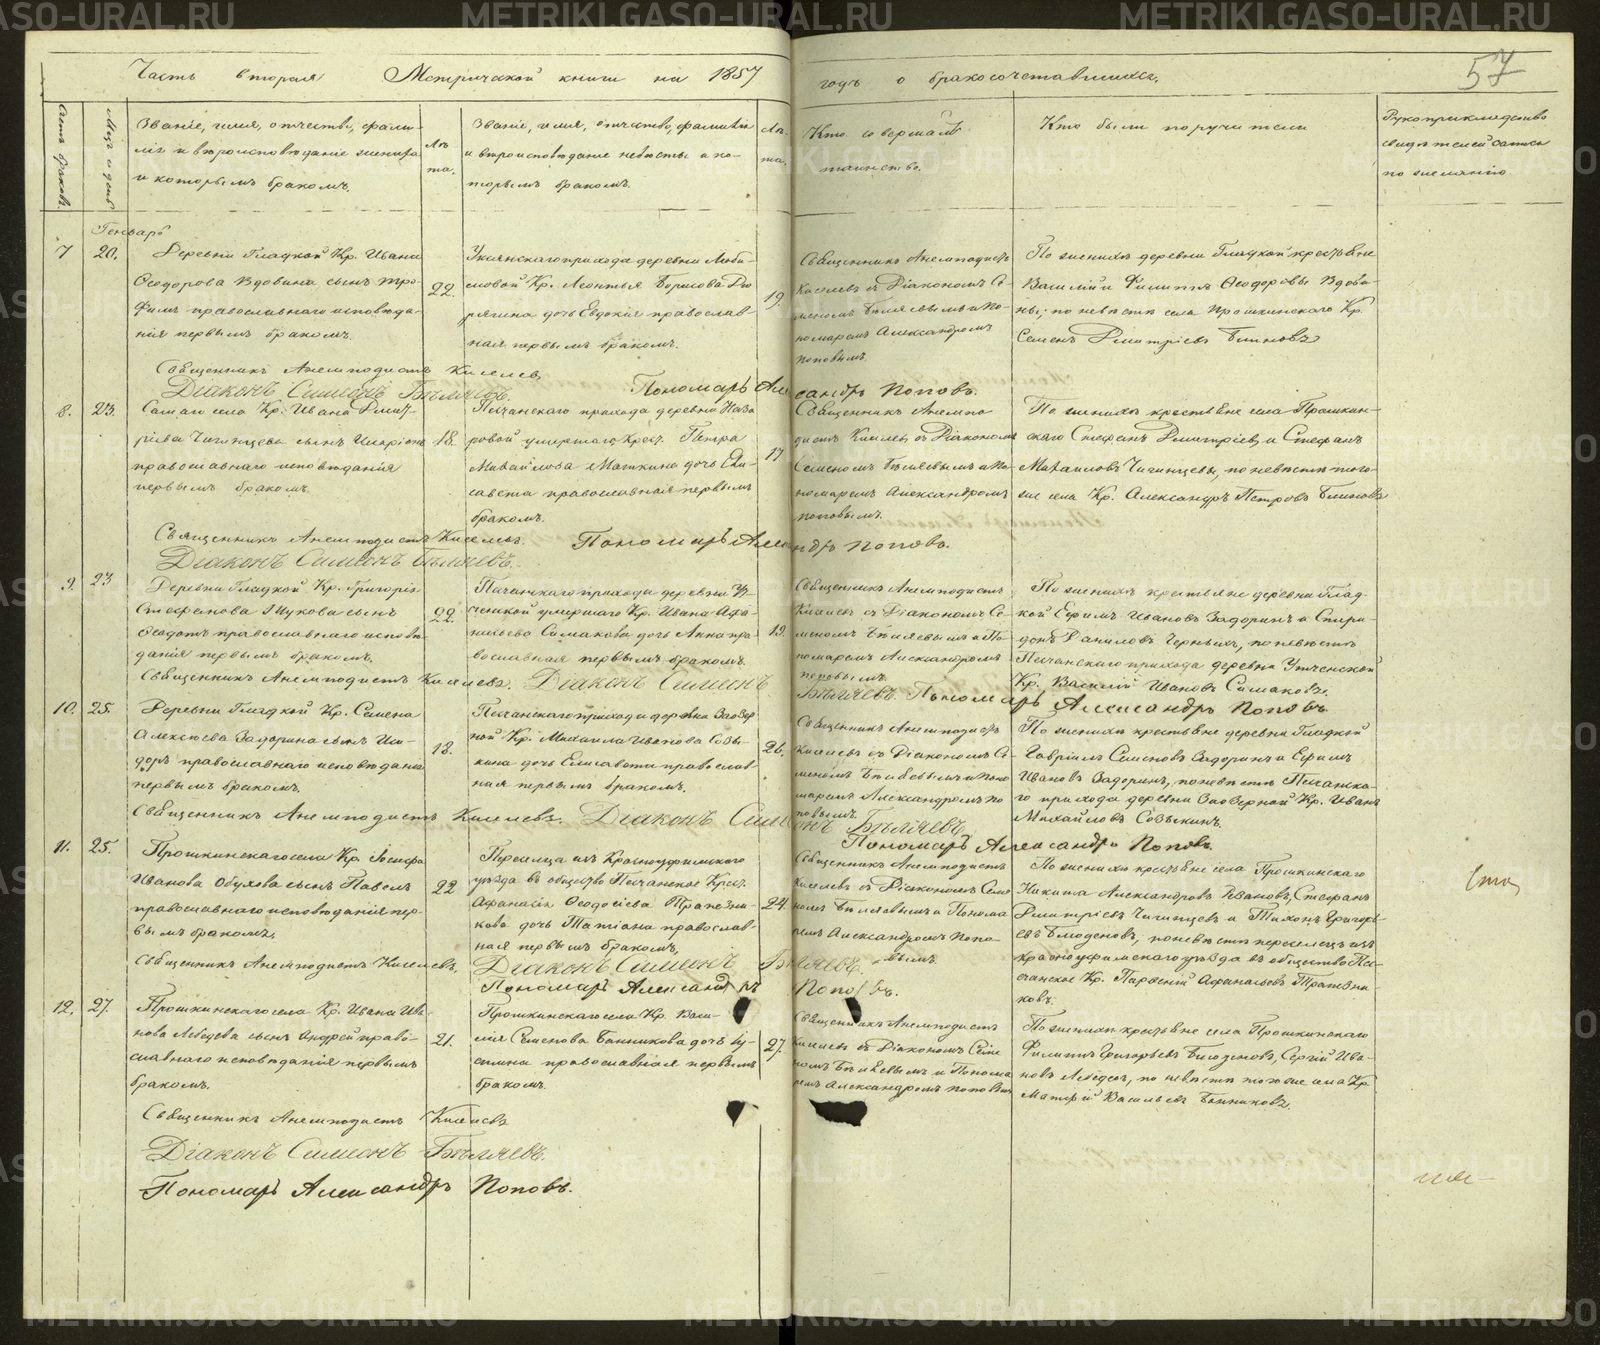 METRIKI.GASO-URAL.RU
Часть вторая Метрической книги на 1857 годъ о бракосочетавшихся.
57
Счетъ браковъ.
Мѣц. и день
Званіе, имя, отчество, фами-
лія и вѣроисповѣданіе жениха
и которымъ бракомъ.
Лѣ-
та.
Званіе, имя, отчество, фамилія
и вѣроисповѣданіе невѣсты и ко-
торымъ бракомъ.
Лѣ-
та.
Кто совершалъ
таинство.
Кто были поручители
Рукоприкладство
свидѣтелей записи
по желанію
Генварь
7 20.
Деревни Гладкой Кр. Ивана
Ѳеодорова Вдовина сынъ Тро-
фимъ православнаго исповѣда-
нія первымъ бракомъ.
22.
прихода деревни Люби-
мовой Кр. Леонтья Борисова
дочь Евдокія православ-
ная первымъ бракомъ.
19.
Священникъ Анемподистъ
Киселевъ съ Діакономъ Си-
меономъ Бѣляевымъ и по-
номаремъ Александромъ
Поповымъ.
По женихѣ деревни Гладкой крестьяне
Василій и Филиппъ Ѳеодоровы Вдови-
ны; по невѣстѣ села Прошкинскаго Кр.
Семенъ Дмитріевъ Блиновъ
Священникъ Анемподистъ Киселевъ
Діаконъ Симеонъ Бѣляевъ. Пономарь Александръ Поповъ.
8. 23.
Самаго села Кр. Ивана Дмит-
ріева Чигинцева сынъ Иларіонъ
православнаго исповѣданія
первымъ бракомъ.
18.
Песчанскаго прихода деревни Наза-
ровой умершаго Крест. Петра
Михайлова Маткина дочь Ели-
савета православная первымъ
бракомъ.
17
Священникъ Анемпо-
дистъ Киселевъ съ Діакономъ
Симеономъ Бѣляевымъ и по-
номаремъ Александромъ
Поповымъ.
По женихѣ крестьяне села Прошкин-
скаго Стефанъ Дмитріевъ и Стефанъ
Михаиловъ Чигинцевы, по невѣстѣ того-
же села Кр. Александръ Петровъ Блиновъ
Священникъ Анемподистъ Киселевъ. Пономарь Александръ Поповъ.
Діаконъ Симеонъ Бѣляевъ.
9. 23
Деревни Гладкой Кр. Григорія
Стефанова Жукова сынъ
Ѳедотъ православнаго исповѣ-
данія первымъ бракомъ.
22.
Песчанскаго прихода деревни Ут-
ченской умершаго Кр. Ивана Афа-
насьева Симакова дочь Анна пра-
вославная первымъ бракомъ.
19.
Священникъ Анемподистъ
Киселевъ съ Діакономъ Си-
меономъ Бѣляевымъ и По-
номаремъ Александромъ
Поповымъ.
По женихѣ крестьяне деревни Глад-
кой Ефимъ Ивановъ Задоринъ и Спири-
донъ Даниловъ Черныхъ, по невѣстѣ
Песчанскаго прихода деревни Утченской
Кр. Василій Ивановъ Симаковъ.
Священникъ Анемподистъ Киселевъ. Діаконъ Симеонъ Бѣляевъ. Пономарь Александръ Поповъ
10. 25.
Деревни Гладкой Кр. Семена
Алексѣева Задорина сынъ Иси-
доръ православнаго исповѣданія
первымъ бракомъ.
18.
Песчанскаго прихода деревни Заозер
ной Кр. Михаила Иванова Созы-
кина дочь Елисавета православ-
ная первымъ бракомъ.
26.
Священникъ Анемподистъ
Киселевъ съ Діакономъ Си-
меономъ Бѣляевымъ и Поно-
маремъ Александромъ По-
повымъ.
По женихѣ крестьяне деревни Гладкой
Гавріилъ Семеновъ Задоринъ и Ефимъ
Ивановъ Задоринъ, по невѣстѣ Песчанска-
го прихода деревни Заозерной Кр. Иванъ
Михайловъ Созыкинъ.
Священникъ Анемподистъ Киселевъ. Діаконъ Симеонъ Бѣляевъ.
Пономарь Александръ Поповъ.
11. 25.
Прошкинскаго села Кр. Іосифа
Иванова Обухова сынъ Павелъ
православнаго исповѣданія пер-
вымъ бракомъ.
22
Переселца изъ Красноуфимскаго
уѣзда въ общество Песчанское Крест.
Афанасія Ѳеодосіева Трапезни-
кова дочь Татіана православ-
ная первымъ бракомъ.
24.
Священникъ Анемподистъ
Киселевъ съ Діакономъ Симе-
ономъ Бѣляевымъ и Понома-
ремъ Александромъ Попо-
вымъ.
По женихѣ крестьяне села Прошкинскаго
Никита Александровъ Ивановъ, Стефанъ
Дмитріевъ Чигинцевъ и Тихонъ Григорь-
евъ, по невѣстѣ переселецъ изъ
Красноуфимскаго уѣзда въ общество Пес-
чанское Кр. Парѳеній Афанасьевъ Трапезни-
ковъ.
Священникъ Анемподистъ Киселевъ. Діаконъ Симеонъ Бѣляевъ.
Пономарь Александръ Поповъ.
12. 27.
Прошкинскаго села Кр. Ивана Ива-
нова Лебедева сынъ Андрей право-
славнаго исповѣданія первымъ
бракомъ.
21.
Прошкинскаго села Кр. Васи-
лія Семенова Банникова дочь Іу-
стина православная первымъ
бракомъ.
27.
Священникъ Анемподистъ
Киселевъ съ Діакономъ Симе-
ономъ Бѣляевымъ и Понома-
ремъ Александромъ Поповымъ
По женихѣ крестьяне села Прошкинскаго
Филиппъ Григорьевъ, Сергій Ива-
новъ Лебедевъ, по невѣстѣ тогоже села Кр.
Матѳій Васильевъ Банниковъ.
Священникъ Анемподистъ Киселевъ
Діаконъ Симеонъ Бѣляевъ.
Пономарь Александръ Поповъ.